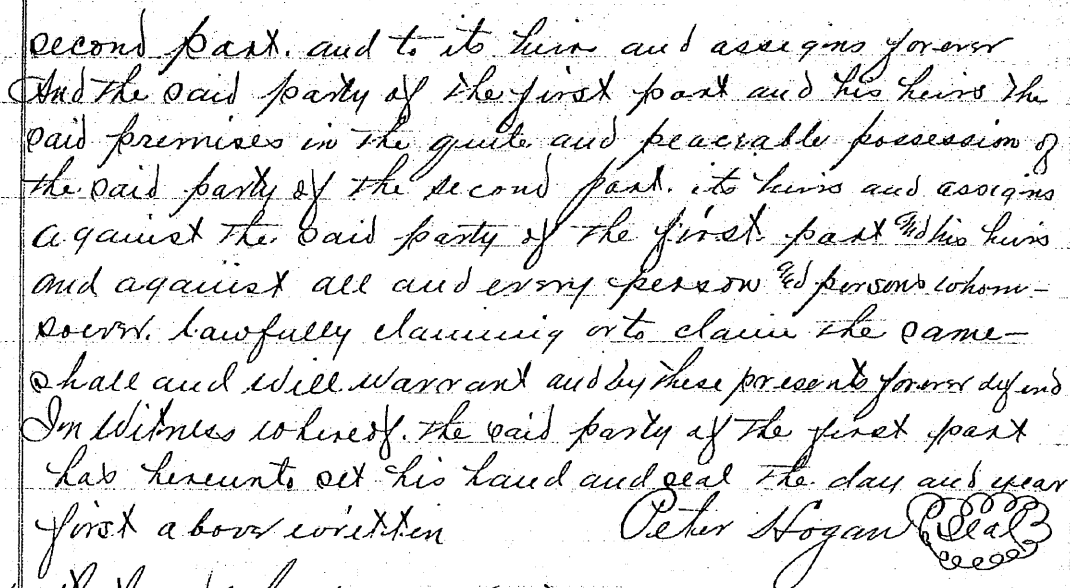 second part. and to its heirs and assigns forever
And the said party of the first part and his heirs the
said premises in the quite and peacable possession of
the said party of the second part. its heirs and assigns
against the said party of the first part and his heirs
and against all and every person and persons whom-
soever. lawfully claiming or to claim the same-
shall and will warrant and by these presents forever defend
In Witness whereof. the said party of the first part
has hereunto set his hand and seal the day and year
first above written Peter Hogan Seal